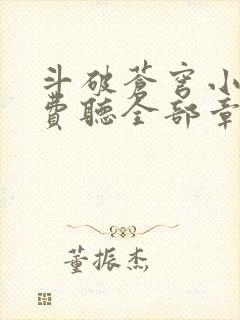 斗破苍穹小
费听全部章
董振杰